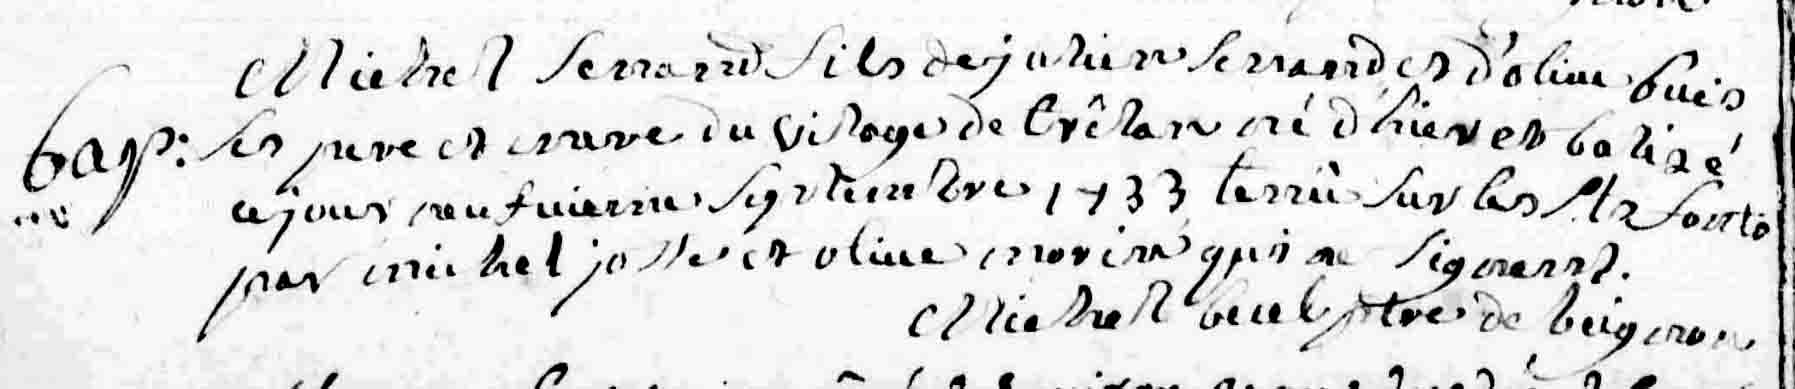 Michel serrand fils de julien serrand et d'olive buis
bap: ses pere et mere du village de trêlan né d'hier et batizé
ce jour neufvieme septembre 1733 tennû sur les sts fonts
par michel josse et olive morin qui ne signent.
Michel ptre de beignon